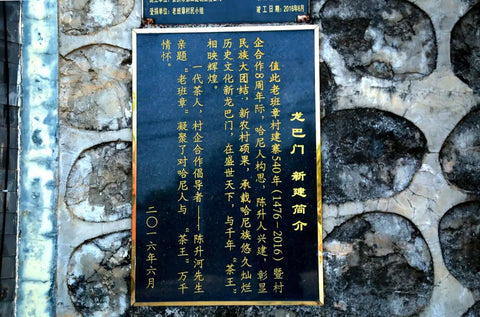 受捐单位：老班章村民小组
竣工日期：2016年6月
龙巴门 新建简介
值此老班章村建寨540年（1476－2016）暨村
企合作8周年际，哈尼人构思，陈升人兴建，彰显
民族大团结，新农村硕果，承载哈尼族悠久灿烂
历史文化新龙巴门，在盛世天下，与千年“茶王”
相映辉煌。
一代茶人，村企合作倡导者——陈升河先生
亲题“老班章”凝聚了对哈尼人与“茶王”万千
情怀。
二〇一六年六月